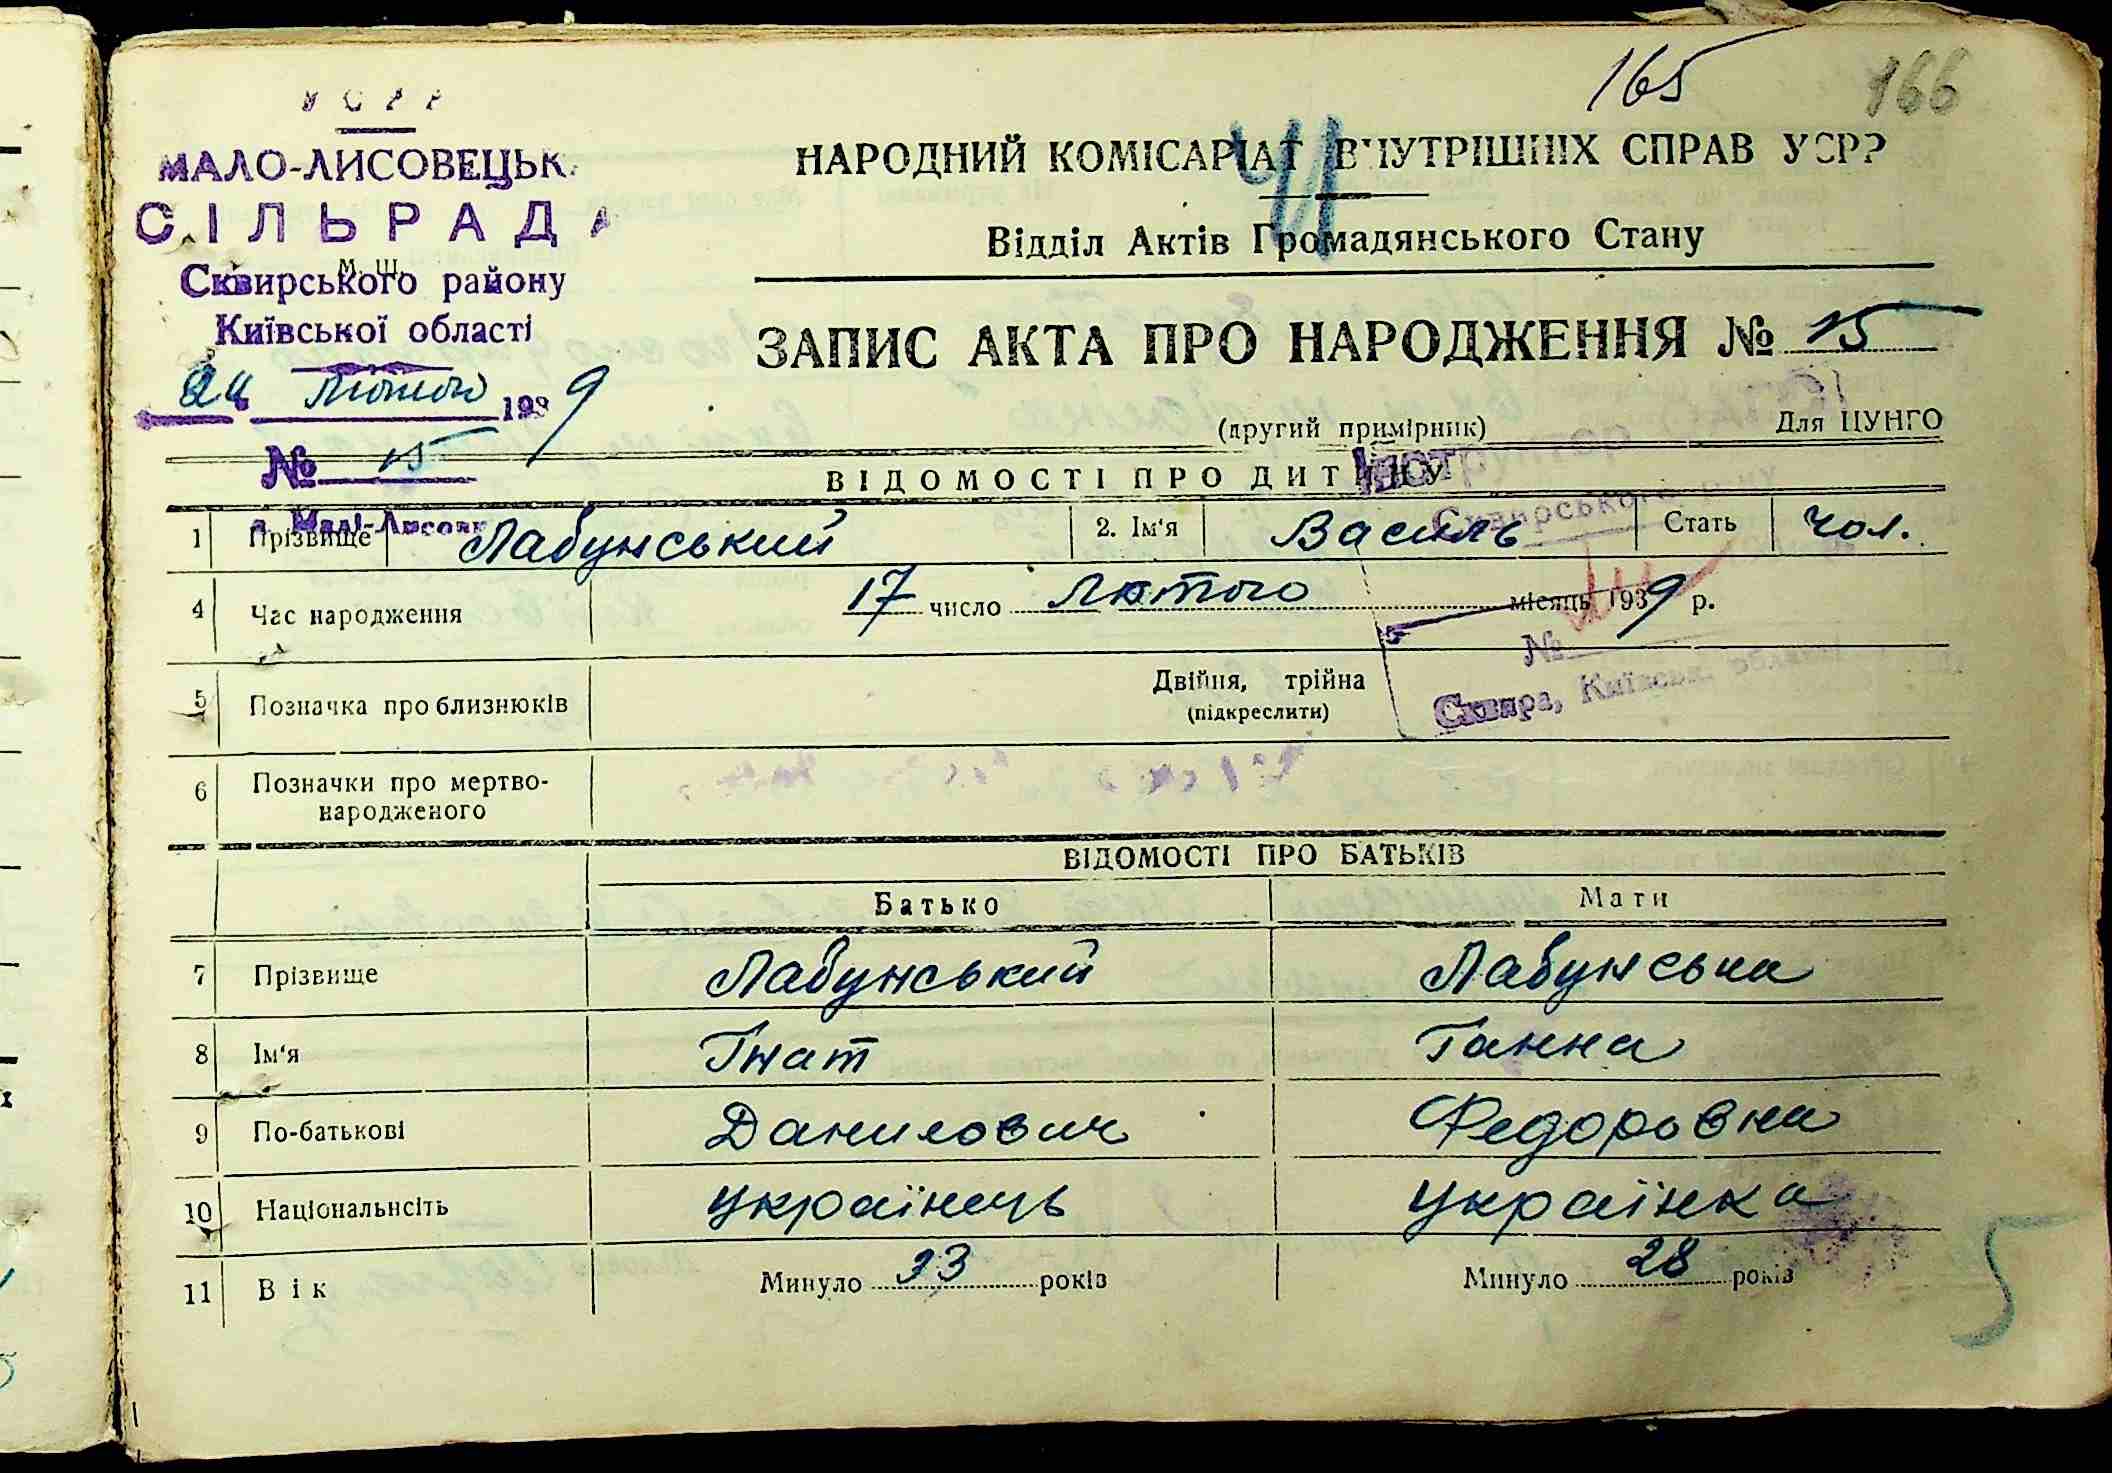 165
166
УСРР
МАЛО-ЛИСОВЕЦЬК
СІЛЬРАДА
м. ш.
Сквирського району
Київської області
24 Лютого 1939
№ 15
НАРОДНИЙ КОМІСАРІАТ ВНУТРІШНІХ СПРАВ УСРР
Відділ Актів Громадянського Стану
ЗАПИС АКТА ПРО НАРОДЖЕННЯ № 15
(другий примірник) Для ЦУНГО
ВІДОМОСТІ ПРО ДИТИНУ
Інструктор
Сквирського р-ну
1 Прізвище Лабунський 2. Ім'я Василь Стать чол.
4 Час народження 17 число Лютого місяць 1939 р.
№
Сквира, Київськ. області
5 Позначка про близнюків Двійня, трійна
(підкреслити)
6 Позначки про мертво-
народженого
ВІДОМОСТІ ПРО БАТЬКІВ
Батько Мати
7 Прізвище Лабунський Лабунська
8 Ім'я Гнат Ганна
9 По-батькові Данилович Федоровна
10 Національнсіть українець українка
11 Вік Минуло 33 років Минуло 28 років
5